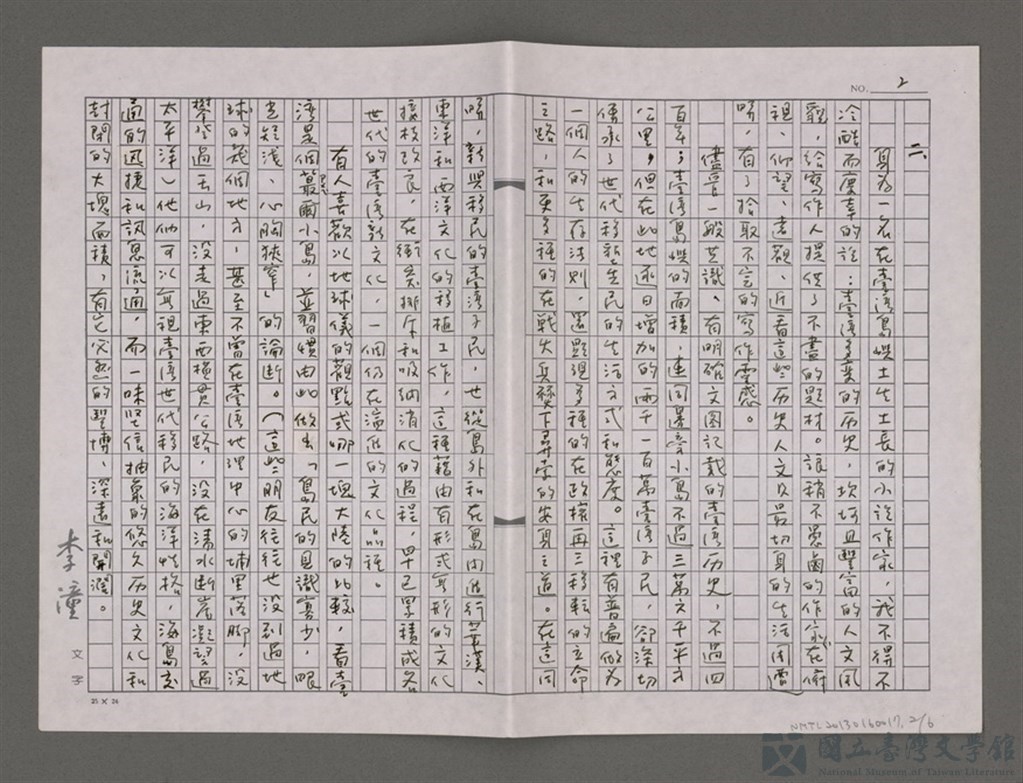 NO. 2
二、
身為一名在臺灣島嶼土生土長的小說作家，我不得不
冷酷而慶幸的說：臺灣多變的歷史，坎坷且豐富的人文風
貌，給寫作人提供了不盡的題材。讓稍不愚鹵的作家在俯
視、仰望、遠觀、近看這些历史人文及最切身的生活周遭
時，有了拾取不完的寫作靈感。
儘管一般共識、有明確文圖記載的臺灣历史，不過四
百年；臺灣島嶼的面積，連同週旁小島不過三萬六千平方
公里，但在此地逐日增加的兩千一百萬臺灣子民，卻深切
傳承了世代移新生民的生活方式和態度。這裡有普遍做為
一個人的生存法則，還顯現多種的在政權再三移転的立命
之路，和更多種的在戰火兵燹下尋常的安身之道。在這同
時，新興移民的臺灣子民，也從島外和在島內進行華漢、
東洋和西洋文化的移植工作，這種藉由有形或無形的文化
接枝改良，在衝突排斥和吸納消化的過程，早已累積成各
世代的臺灣新文化，一個仍在演進的文化品種。
有人喜歡以地球儀的觀點或哪一塊大陸的比較，看臺
灣是個蕞爾小島，並習慣由此做出「島民的見識寡少，眼
光短淺、心胸狹窄」的論斷。（這些朋友往往也沒到過地
球的幾個地方，甚至不曾在臺灣地理中心的埔里落腳，沒
攀登過玉山，沒走過東西橫貫公路，沒在清水斷崖凝望過
太平洋）他們可以無視臺灣世代移民的海洋性格，海島交
通的迅捷和訊息流通，而一味堅信抽象的悠久历史文化和
封閉的大塊面積，有它必然的豐博、深遠和開闊。
李潼
文字
25 × 24
NMTL20130160017, 2/6
國立臺灣文學館
National Museum of Taiwan Literature